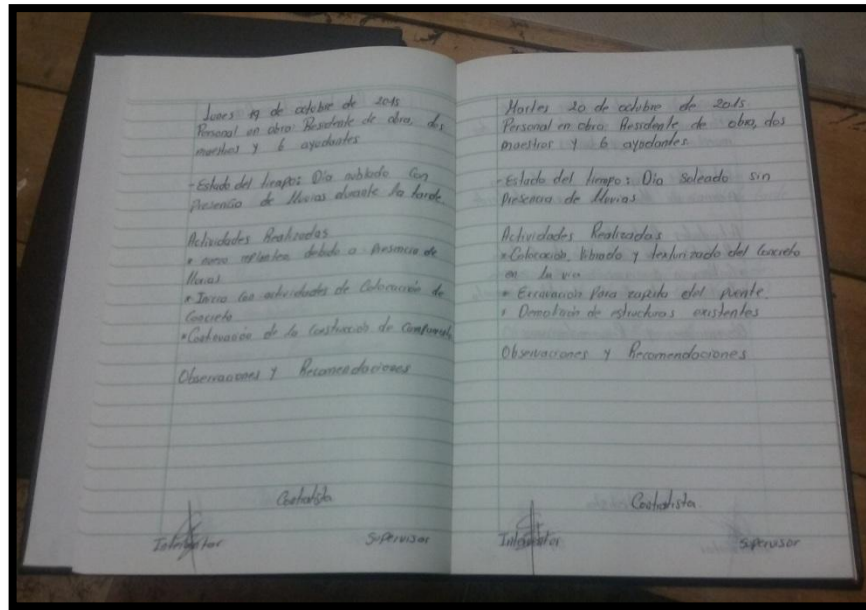 Lunes 19 de octubre de 2015
Personal en obra: Residente de obra, dos
maestros y 6 ayudantes
- Estado del tiempo: Dia nublado con
Presencia de lluvias durante la tarde
Actividades Realizadas
* nuevo replanteo debido a Presencia de
lluvias
* Inicio con actividades de Colocación de
Concreto
* Continuación de la Construcción de
Observaciones y Recomendaciones
Contratista
Interventor Supervisor
Martes 20 de octubre de 2015
Personal en obra: Residente de obra, dos
maestros y 6 ayudantes
- Estado del tiempo: Dia Soleado sin
Presencia de lluvias
Actividades Realizadas
* Colocación, Vibrado y texturizado del Concreto
en la via
* Excavación Para zapata del puente
* Demolición de estructuras existentes
Observaciones y Recomendaciones
Contratista
Interventor Supervisor